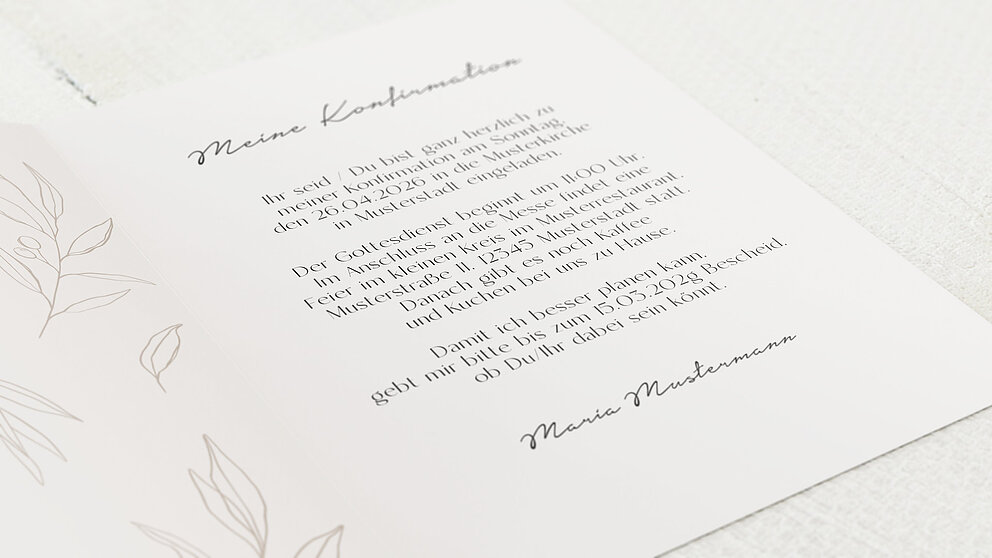 Meine Konfirmation
Ihr seid / Du bist ganz herzlich zu
meiner Konfirmation am Sonntag,
den 26.04.2026 in die Musterkirche
in Musterstadt eingeladen.
Der Gottesdienst beginnt um 11:00 Uhr.
Im Anschluss an die Messe findet eine
Feier im kleinen Kreis im Musterrestaurant.
Musterstraße 11, 12345 Musterstadt statt.
Danach gibt es noch Kaffee
und Kuchen bei uns zu Hause.
Damit ich besser planen kann.
gebt mir bitte bis zum 15.03.202g Bescheid.
ob Du/Ihr dabei sein könnt.
Maria Mustermann